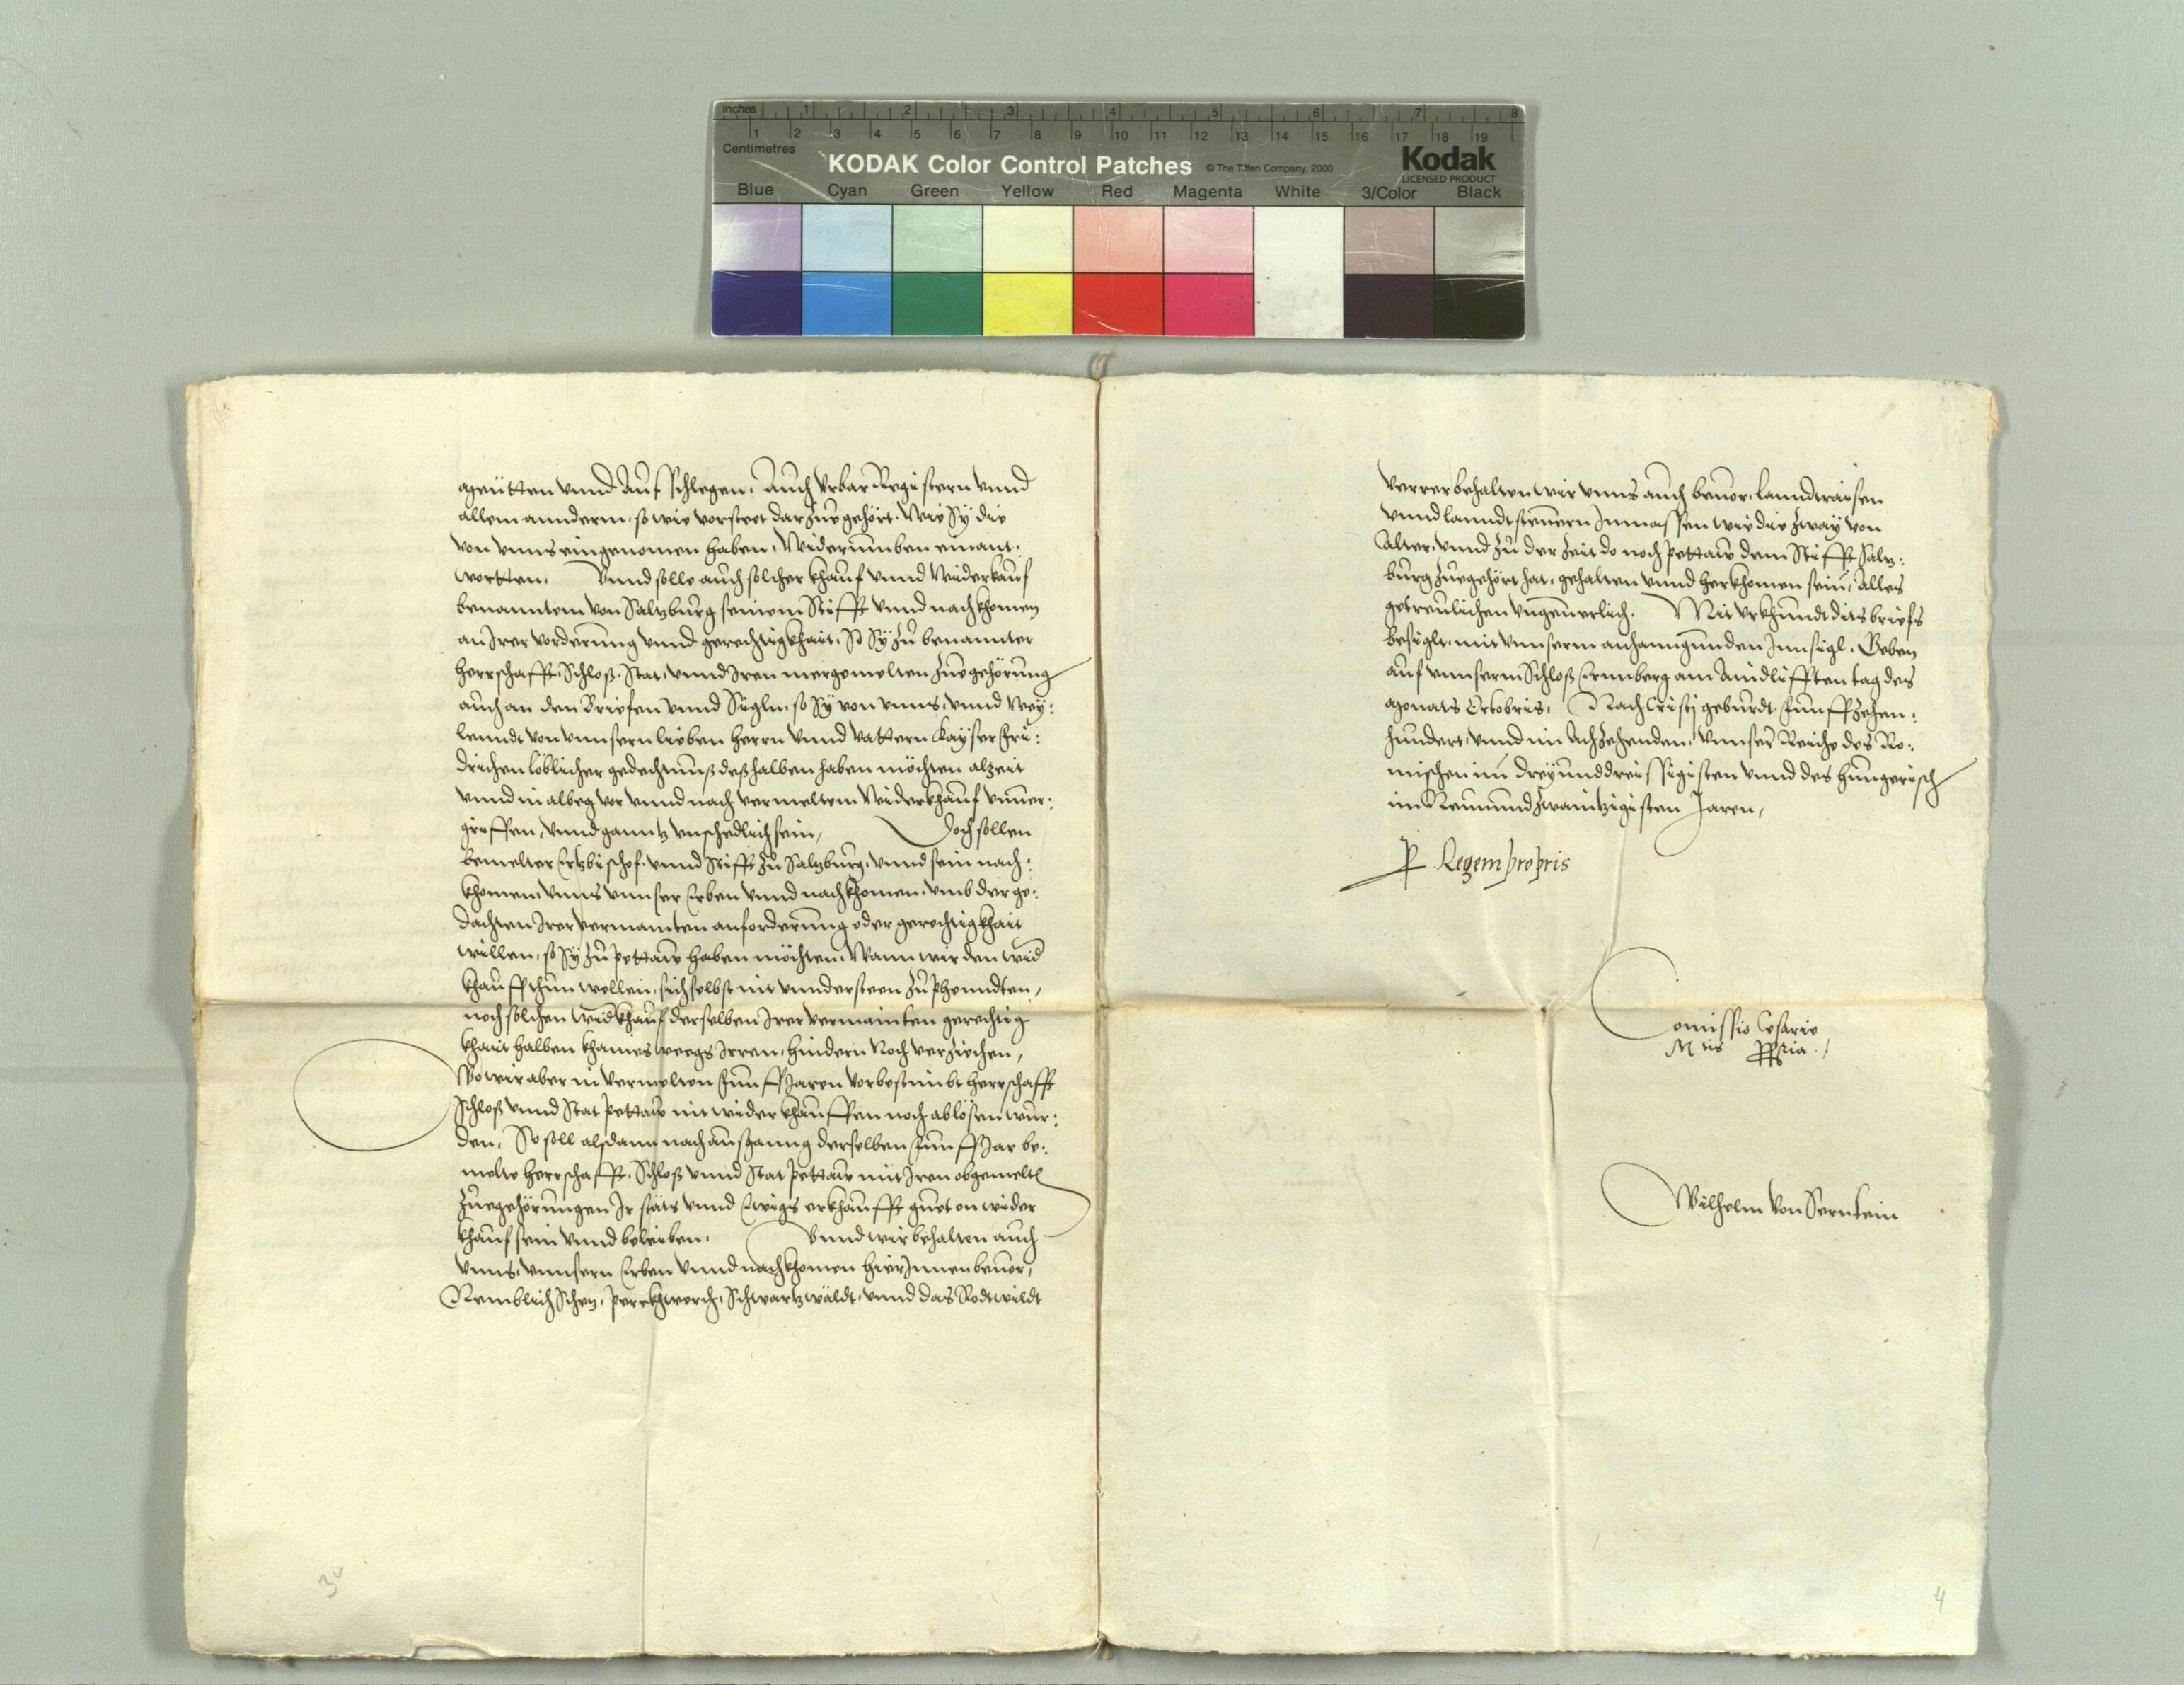 Inches 1 2 3 4 5 6 7 8
1 2 3 4 5 6 7 8 9 10 11 12 13 14 15 16 17 18 19
Centimetres
KODAK Color Control Patches © The Tiffen Company, 2000 Kodak
LICENSED PRODUCT
Blue Cyan Green Yellow Red Magenta White 3/Color Black
meütten vnnd Aufschlegen, Auch Vrbar Registern vnnd
allem annderm, so wie vorsteet darzue gehört, Wie Sy die
von vnns eingenomen haben, Widerumben einant:
wortten. Vnnd solle auch solcher khauf vnnd Widerkauf
benanntem von Saltzburg seinem Stifft vnnd nachkhomen
an Irer vorderung vnnd gerechtigkhait, so Sy zu benannter
herrschafft, Schloß, Stat, vnnd Iren mergemelten zuegehörung
auch an den Briefen vnnd Sigln, so Sy von vnns, vnnd Wey:
lenndt von vnnserm lieben herrn vnnd vattern Kayser Fri:
drichen löblicher gedechtnuß deßhalben haben möchten alzeit
vnnd in albeg vor vnnd nach vermeltem Widerkhauf vnuer:
griffen, vnnd ganntz vnschedlich sein, Doch sollen
bemelter Ertzbischof vnnd Stifft zu Saltzburg, vnnd sein nach:
khomen, vnns vnnser Erben vnnd nachkhomen, vmb der ge:
dachten Irer vermainten anforderung oder gerechtigkhait
willen, so Sy zu Pettaw haben möchten, Wann wir den wid
khauff thun wellen, sich selbst nit vndersteen zu phenndten,
noch solchen widkhauf derselben Irer vermainten gerechtig
khait halben khaines weegs Irren, hindern noch verziehen,
Wo wir aber in vermelten Funff Jaren vorbestimbt herrschafft
Schloß vnnd Stat Pettaw nit wider khauffen noch ablösen wur:
den, So soll alsdann nach außganng derselben Funff Jar be:
melte herrschafft, Schloß vnnd Stat Pettaw mit Iren obgemelt
zuegehörungen Ir stäts vnnd Ewigs erkhaufft guet on wider
khauf sein vnnd beleiben, Vnnd wir behalten auch
vnns, vnnsern Erben vnnd nachkhomen hierInnen beuor,
Nemblich Schetz, Perckhwerch, Schwartzwäldt, vnnd das Rotwildt
Verrer behalten wir vnns auch beuor, lanndtraisen
vnnd lanndtsteuern Inmassen wie die zway von
Alter, vnnd zu der zeit do noch Pettaw dem Stifft Saltz:
burg zuegehört hat, gehalten vnnd herkhomen sein, Alles
getreulichen vngeuerlich. Mit vrkhundt dits briefs
besiglt, mit vnnserm anhanngunden Innsigl, Geben
auf vnnserm Schloß Ernnberg am Aindlifften tag des
monats Octobris, Nach Cristj geburdt Funffzehen:
hundert, vnnd im Achzehenden, Vnnser Reiche des Ro:
mischen im dreyunddreissigisten vnnd des hungerisch
im Neunundzwaintzigisten Jaren,
P Regem propris
Comissio Cesarie
Mtis ppria
Wilhelm von Serntein
3v
4